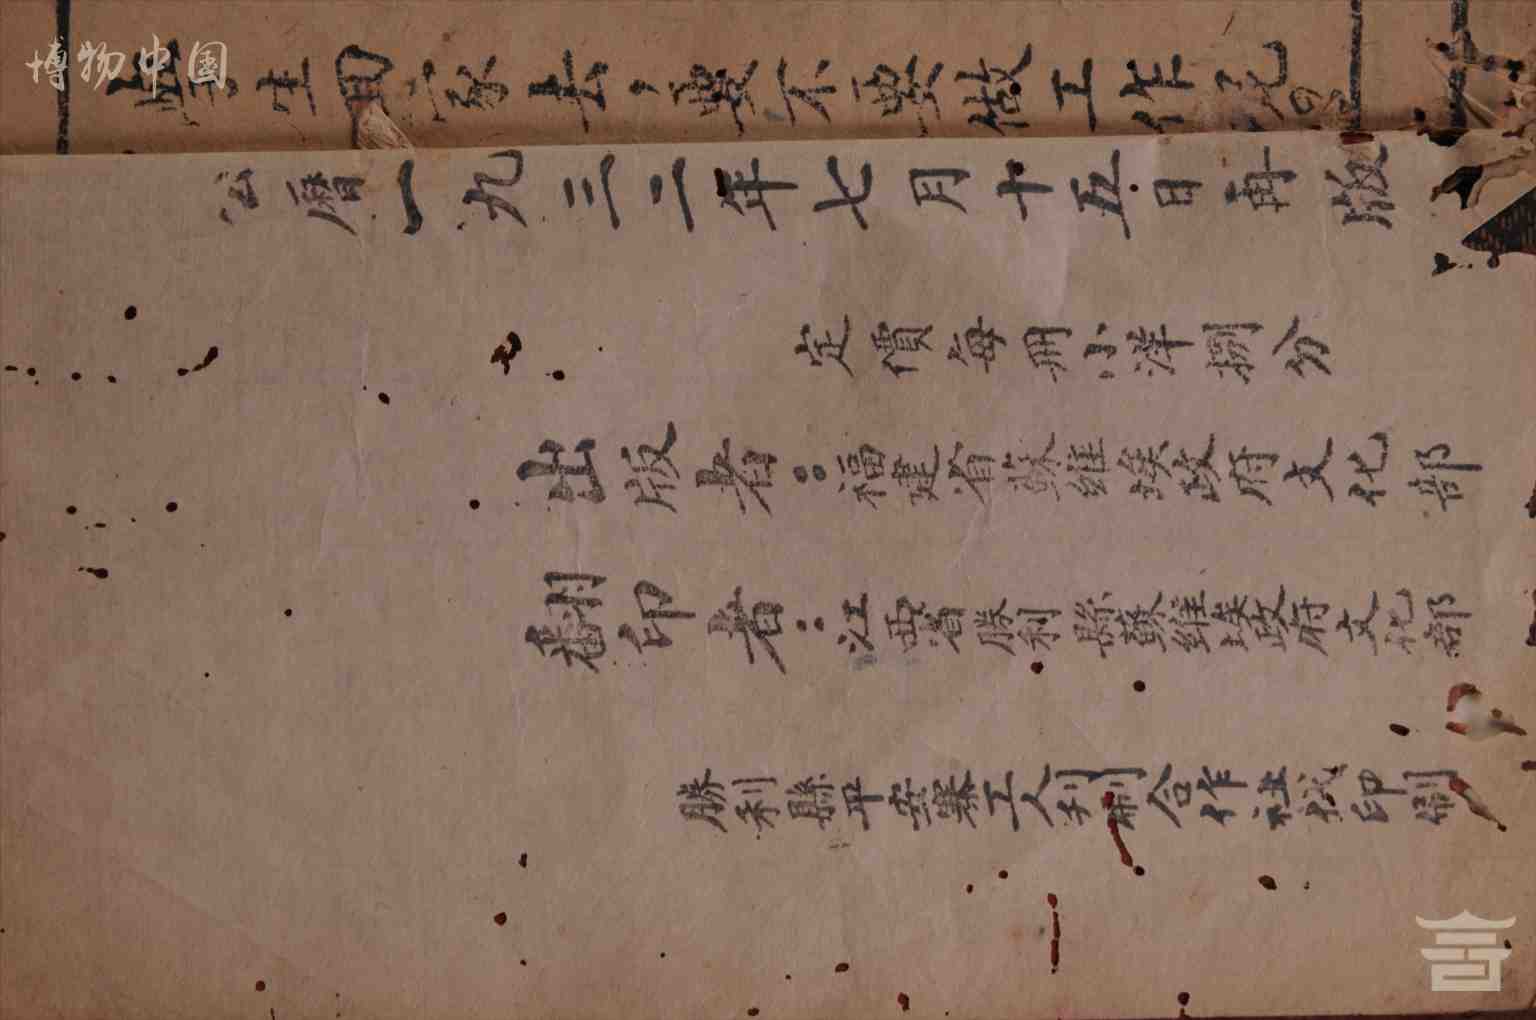 博物中国
生回家去，要不要做工作呢？
公曆一九三二年七月十五日再版
定價每冊小洋捌分
出版者：福建省蘇維埃政府文化部
翻印者：江西省勝利縣蘇維埃政府文化部
勝利縣平安寨工人刊刷合作社代印刷